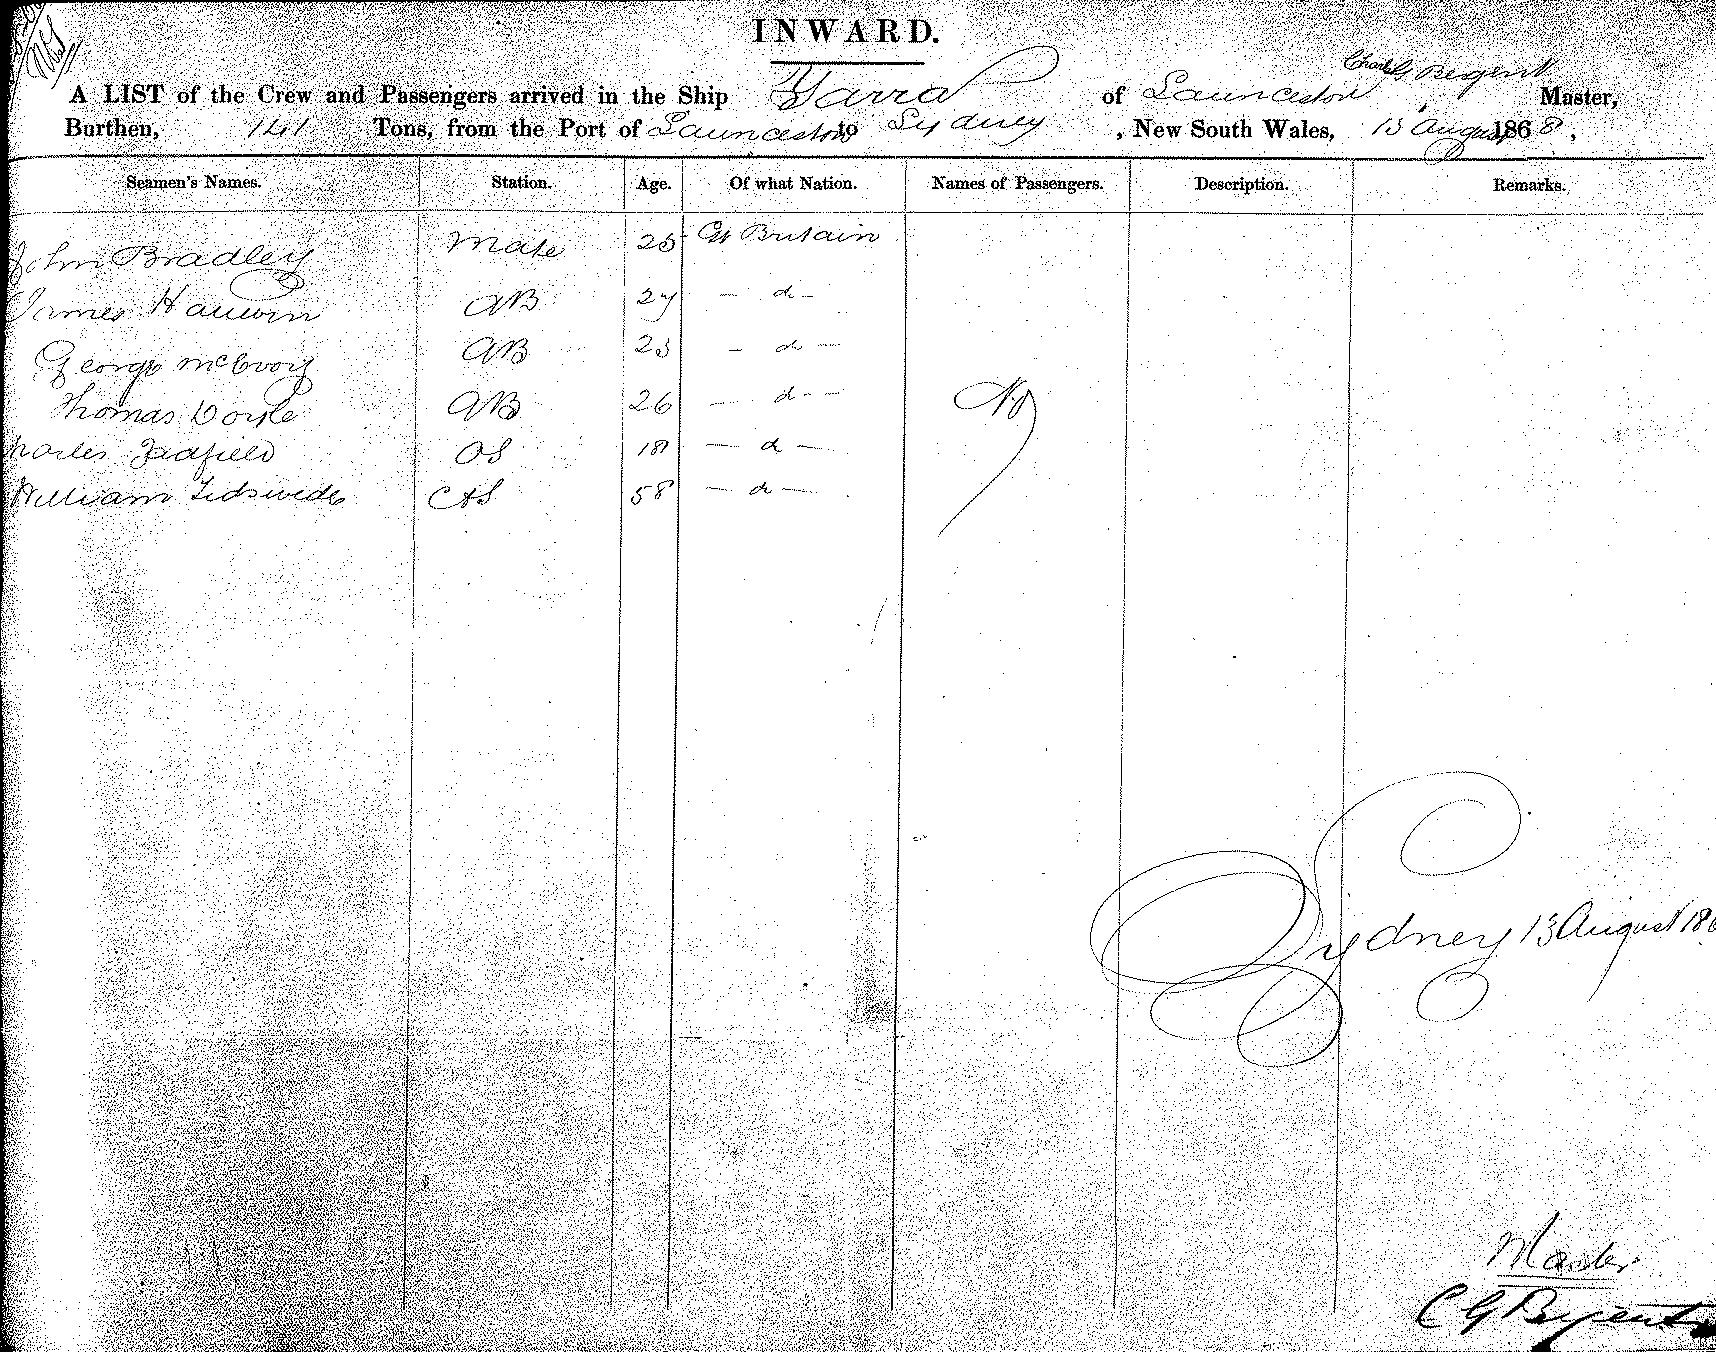 INWARD.
A LIST of the Crew and Passengers arrived in the Ship Yarra of Launceston Charles G Regent Master,
Burthen, 141 Tons, from the Port of Launceston to Sydney, New South Wales, 13 August 1868,
Seamen's Names. Station. Age. Of what Nation. Names of Passengers. Description. Remarks.
John Bradley Mate 25 Gt Britain
James AB 27 — do —
George McEvoy AB 23 — do —
Thomas Doyle AB 26 — do — No
Charles OS 18 — do —
William 58 — do —
Sydney 13 August 186
Master
C G